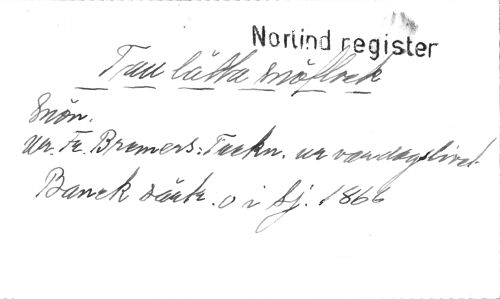 Norlind register
Tau lätta snöflock
Snön.
Ur Fr. Bremers: Teckn. ur vardagslivet.
Banck särtr. o i Sj. 1866